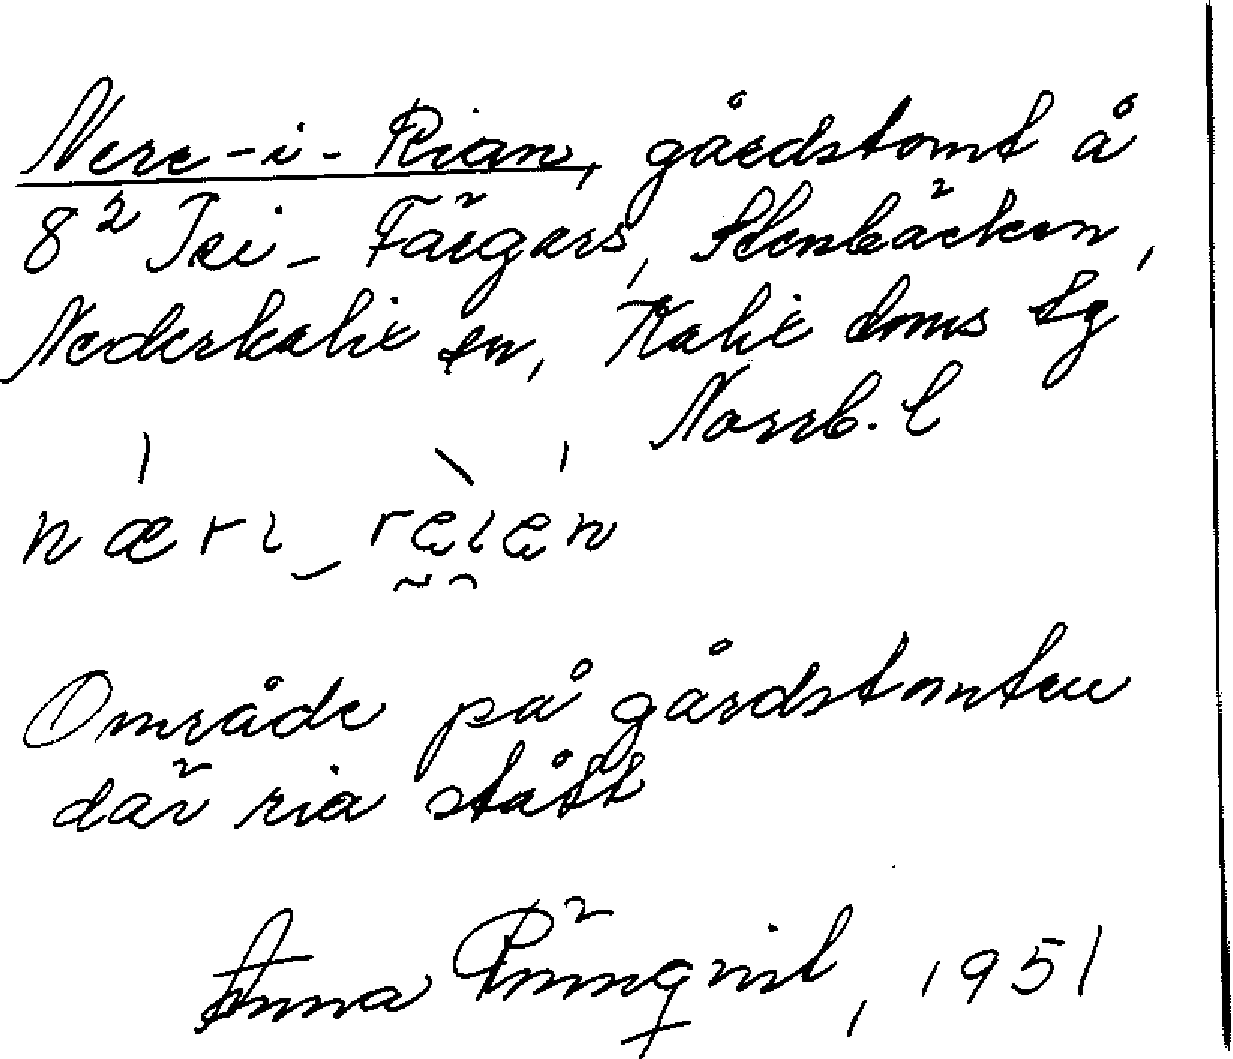 Nere-i-Rian, gårdstomt å
8² Isi-Färgars, Stenbäcken,
Nederkalix sn, Kalix doms tg
Norrb. l
næri_rei̯en
Område på gårdstomten
där ria stått
Anna Rönnqvist, 1951